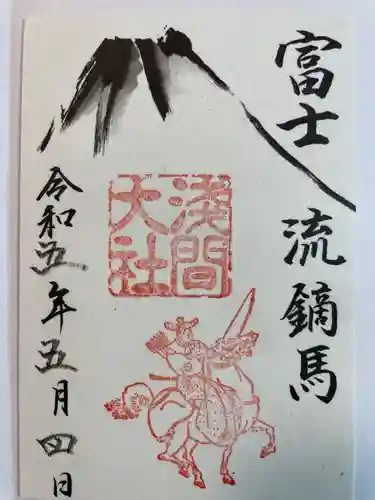 富士
流鏑馬
淺間
大社
令和五年五月四日